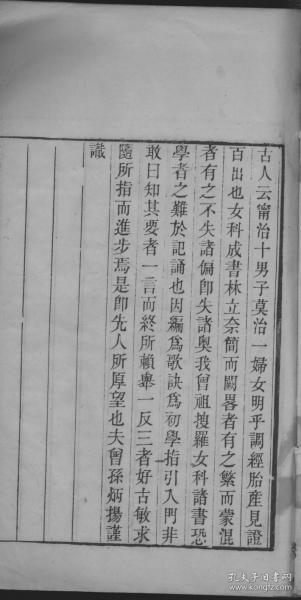 古人云甯治十男子莫治一婦女明乎調經胎產見證
百出也女科成書林立奈簡而闕畧者有之繁而蒙混
者有之不失諸偏即失諸奧我曾祖搜羅女科諸書恐
學者之難於記誦也因編爲歌訣爲初學指引入門非
敢曰知其要者一言而終所賴舉一反三者好古敏求
隨所指而進步焉是卽先人所厚望也夫曾孫炳揚謹
識
孔夫子旧书网